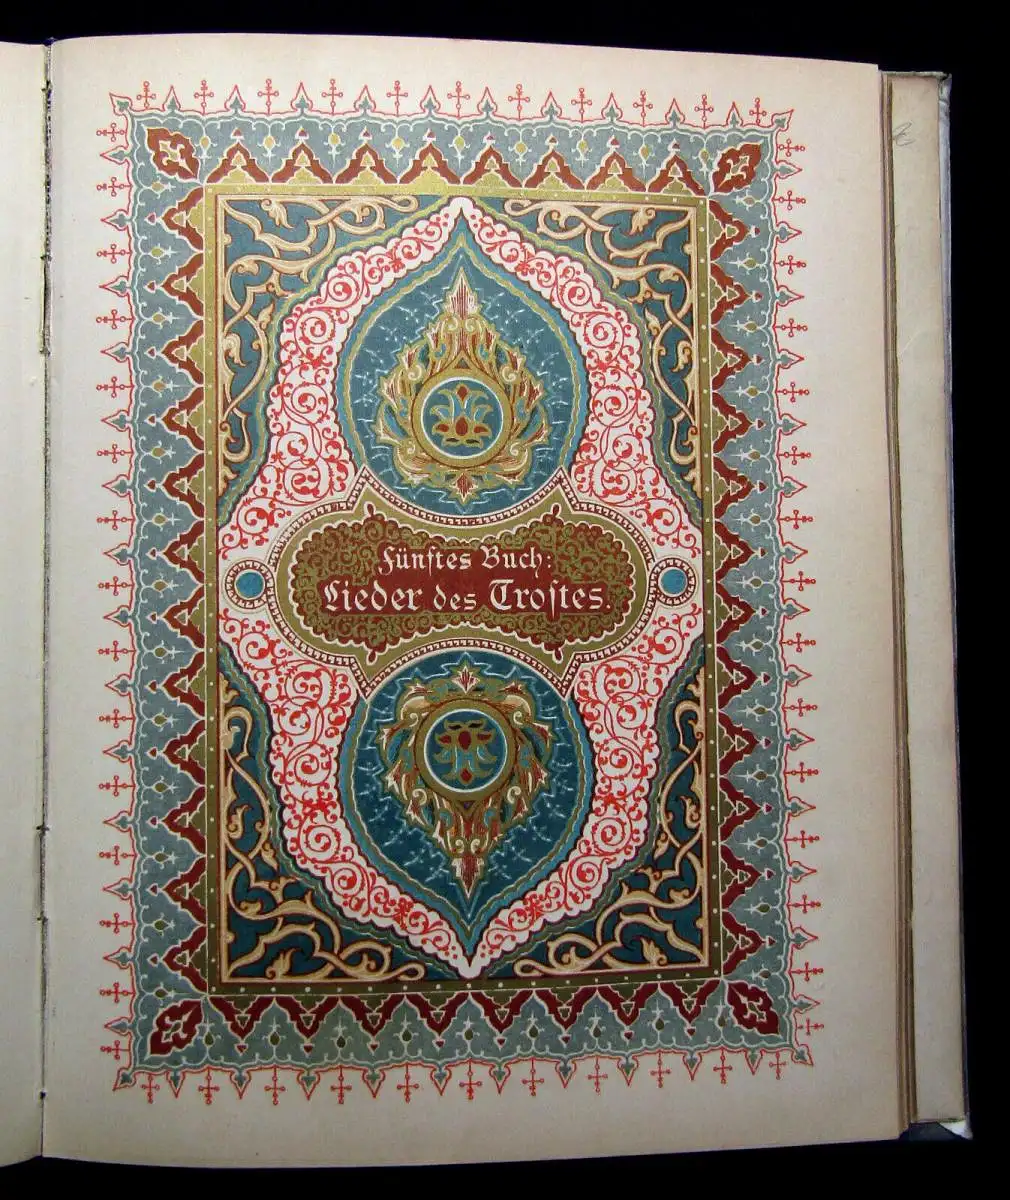 Fünftes Buch:
Lieder des Trostes.